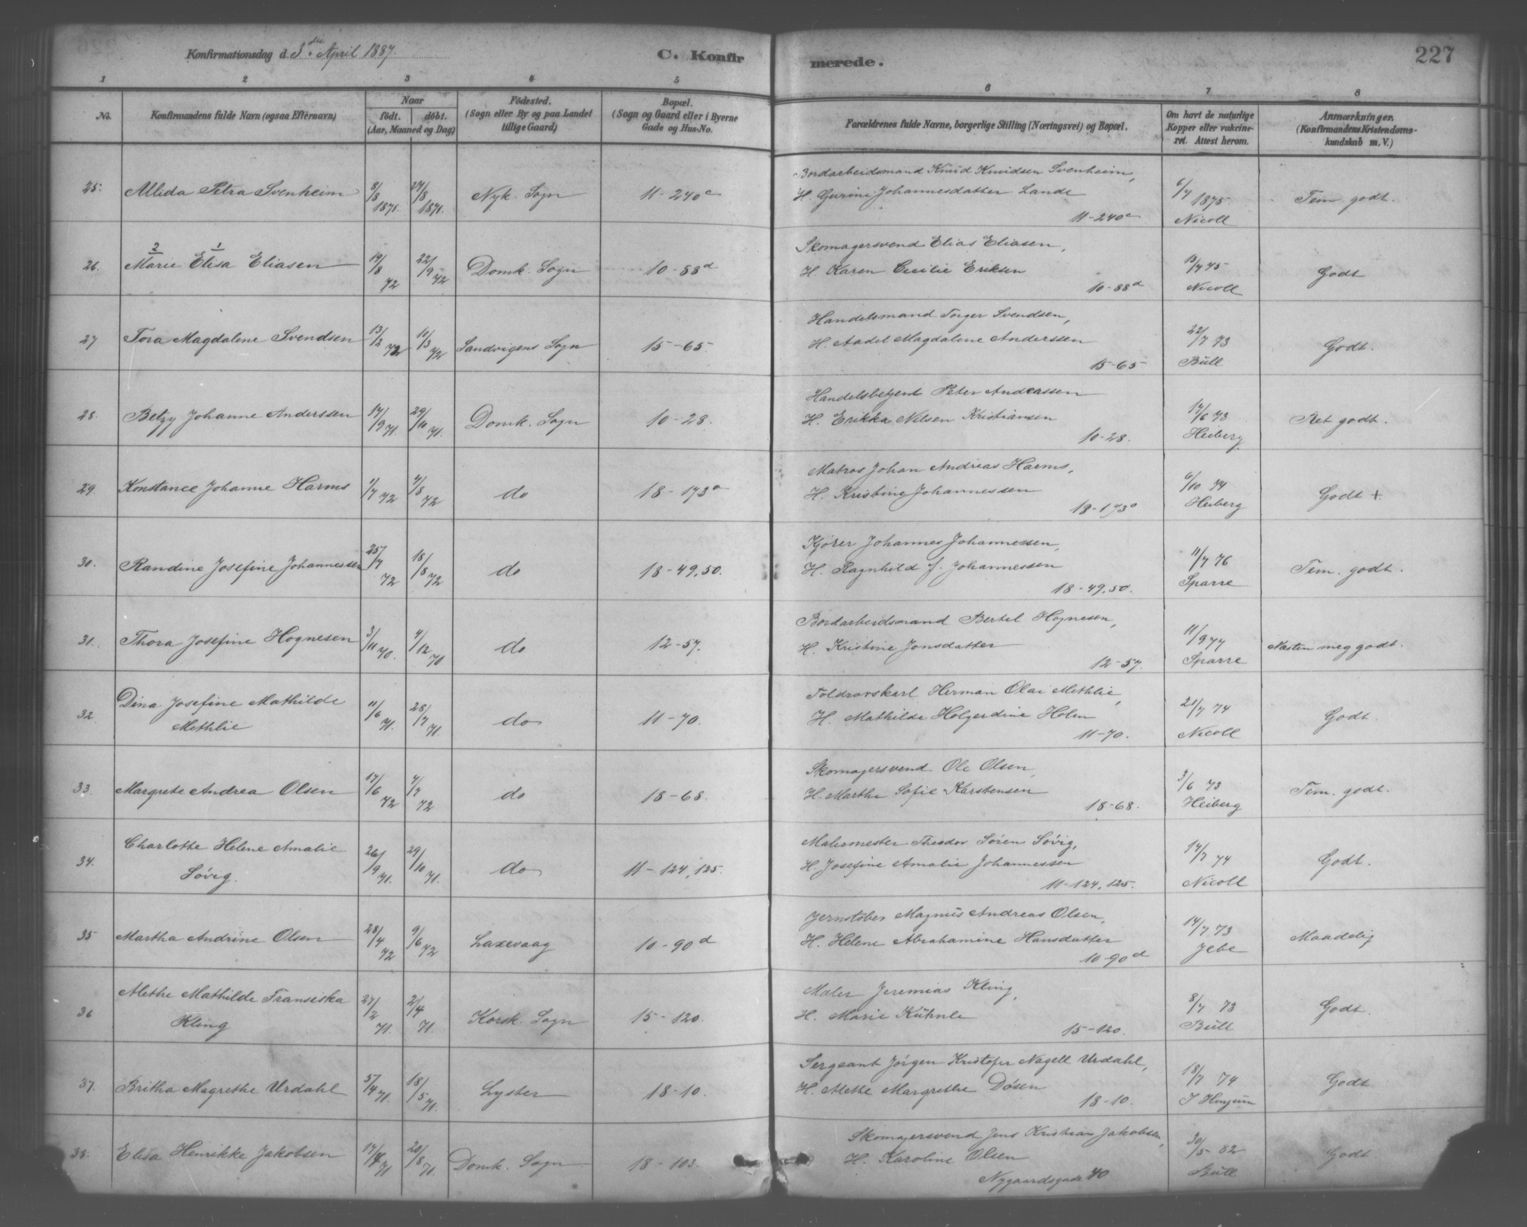 Konfirmationsdag d. 3die April 1887.
C. Konfirmerede.
227
1 2 3 4 5 6 7 8
No.
Konfirmandens fulde Navn (ogsaa Efternavn)
Naar
født. døbt.
(Aar, Maaned og Dag)
Fødested.
(Sogn eller By og paa Landet tillige Gaard)
Bopæl.
(Sogn og Gaard eller i Byerne Gade og Hus-No.
Forældrenes fulde Navne, borgerlige Stilling (Næringsvei) og Bopæl.
Om havt de naturlige Kopper eller vakcineret. Attest herom.
Anmærkninger.
(Konfirmandens Kristendomskundskab m. V.)
25. Allida Petra Svenheim 8/8 1871. 27/8 1871. Nyk. Sogn 11-240c
Bordarbeidsmand Knud Knudsen Svenheim,
H. Gurine Johannesdatter Lande
11-240c
6/7 1875 Nicoll Tem. godt.
26. Marie Elisa Eliasen 14/8 72 22/9 72 Domk. Sogn 10-88d
Skomagersvend Elias Eliasen,
H. Karen Cecilie Eriksen
10-88d
Nicoll Godt
27 Tora Magdalene Svendsen 72 11/3 72 Sandvigens Sogn 15-65
Handelsmand Torger Svendsen,
H. Aadel Magdalene Anderssen
15-65
22/7 73 Büll Godt.
28. Betzy Johanne Anderssen 17/9 71. 29/10 71. Domk. Sogn 10-28.
Handelsbetjent Peter Andreassen
H. Erikka Nilsen Kristiansen
10-28.
17/6 73 Heiberg Ret godt.
29. Konstance Johanne Harms 72 4/8 72 do 18-173a
Matros Johan Andreas Harms,
H. Kristine Johannessen
18-173a
6/10 74 Heiberg Godt +
30. Randine Josefine Johannessen 25/7 72 18/8 72 do 18-49,50.
Kjører Johannes Johannessen,
H. Ragnhild f. Johannessen
18-49,50.
11/7 76 Sparre Tem. godt.
31. Thora Josefine Hognesen 3/11 70. 4/12 70 do 12-57.
Bordarbeidsmand Bertel Hognesen,
H. Kristine Jonsdatter
12-57.
11/9 77 Sparre Næsten meg godt.
32. Dina Josefine Mathilde
Methlie 11/6 71. 23/7 71. do 11-70.
Toldrorskarl Herman Olai Methlie,
H. Mathilde Holgerdine Holm
11-70.
21/7 74 Nicoll Godt.
33. Margrete Andrea Olsen 17/6 72 4/7 72 do 18-68.
Skomagersvend Ole Olsen,
H. Marthe Sofie Karstensen
18-68.
3/6 73 Heiberg Tem. godt.
34. Charlotte Helene Amalie
Søvig. 26/9 71. 29/10 71. do 11-124,125.
Malermester Theodor Søren Søvig,
H. Josefine Amalie Johannessen
11-124,125.
14/7 74 Nicoll Godt.
35 Martha Andrine Olsen 28/4 72 9/6 72 Laxevaag 10-90d
Jernstøber Magnus Andreas Olsen,
H. Helene Abrahamine Hansdatter
10-90d
14/7 73 Jebe Maadelig
36 Methe Mathilde Fransiska
Kling 27/2 71. 2/4 71. Korsk. Sogn 15-120.
Maler Jeremias Kling,
H. Marie Kühnle
15-120.
8/7 73 Büll Godt.
37. Britha Magrethe Urdahl 71. 18/5 71. Lyster 18-10.
Sergeant Jørgen Kristofer Nagell Urdahl,
H. Methe Margrethe Døsen
18-10.
18/7 74 Godt
38. Elisa Henrikke Jakobsen 71 20/8 71 Domk. Sogn 18-103.
Skomagersvend Jens Kristian Jakobsen,
H. Karoline Olsen
Nygaardsgade 40
20/5 82 Büll Godt